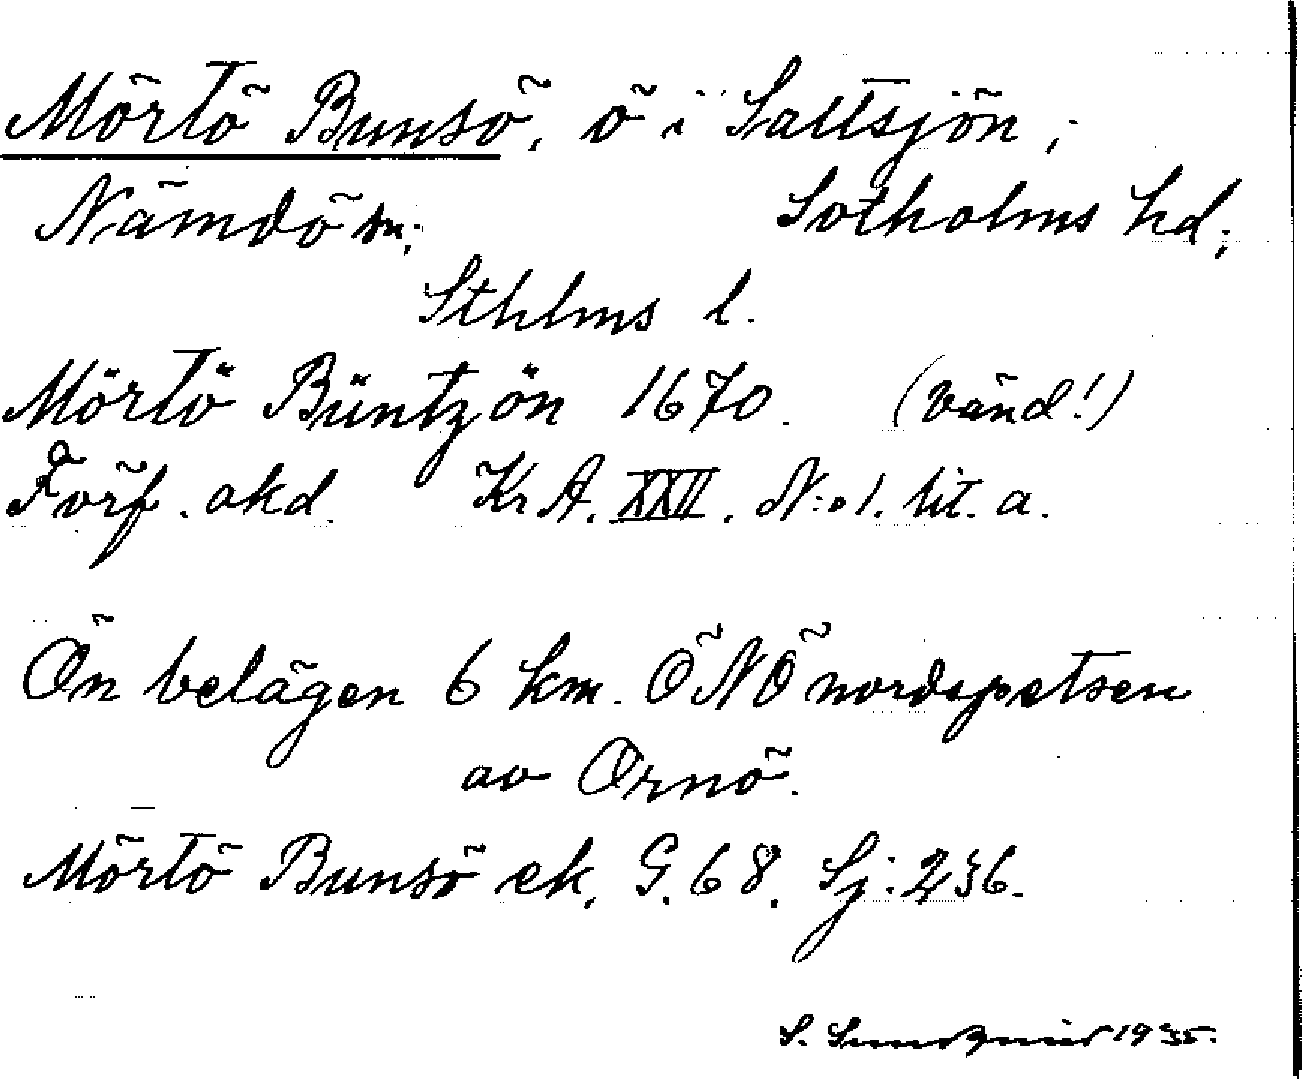 Mörtö Bunsö, ö i Saltsjön;
Nämdö sn; Sotholms hd;
Sthlms l.
Mörtö Büntzön 1670. (vänd!)
Förf. okd. Kr A. XXII. N:o 1. lit. a.
Ön belägen 6 km. ÖNÖ nordspetsen
av Ornö.
Mörtö Bunsö ek. G. 68. Sj: 236.
S. 1935.